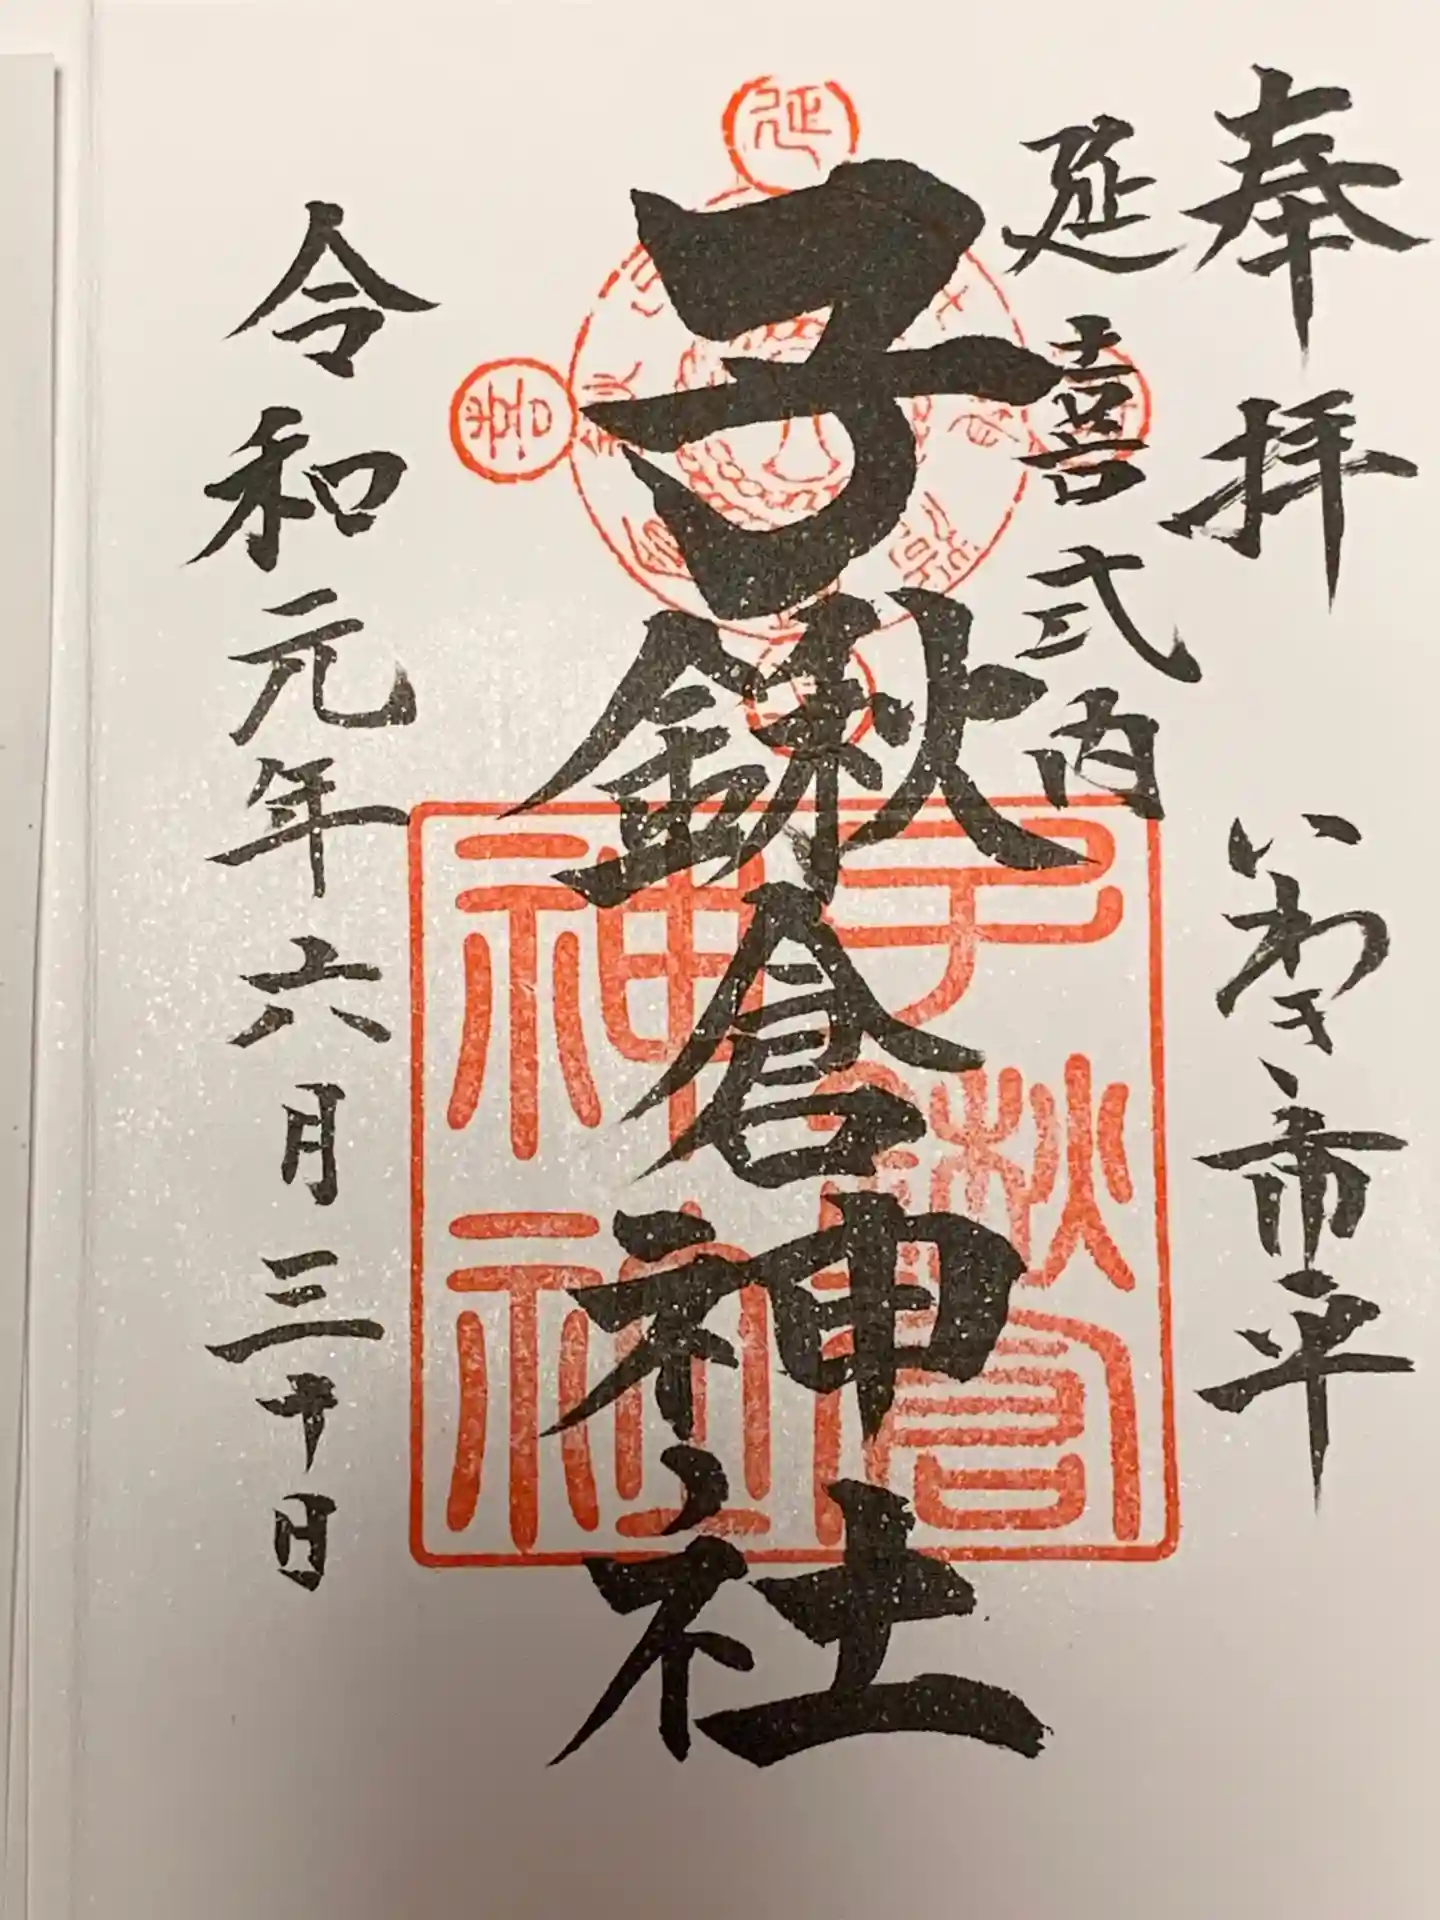 奉拝 いわき市平
延喜式内
子鍬倉神社
令和元年六月三十日
延
喜
子鍬倉
神社